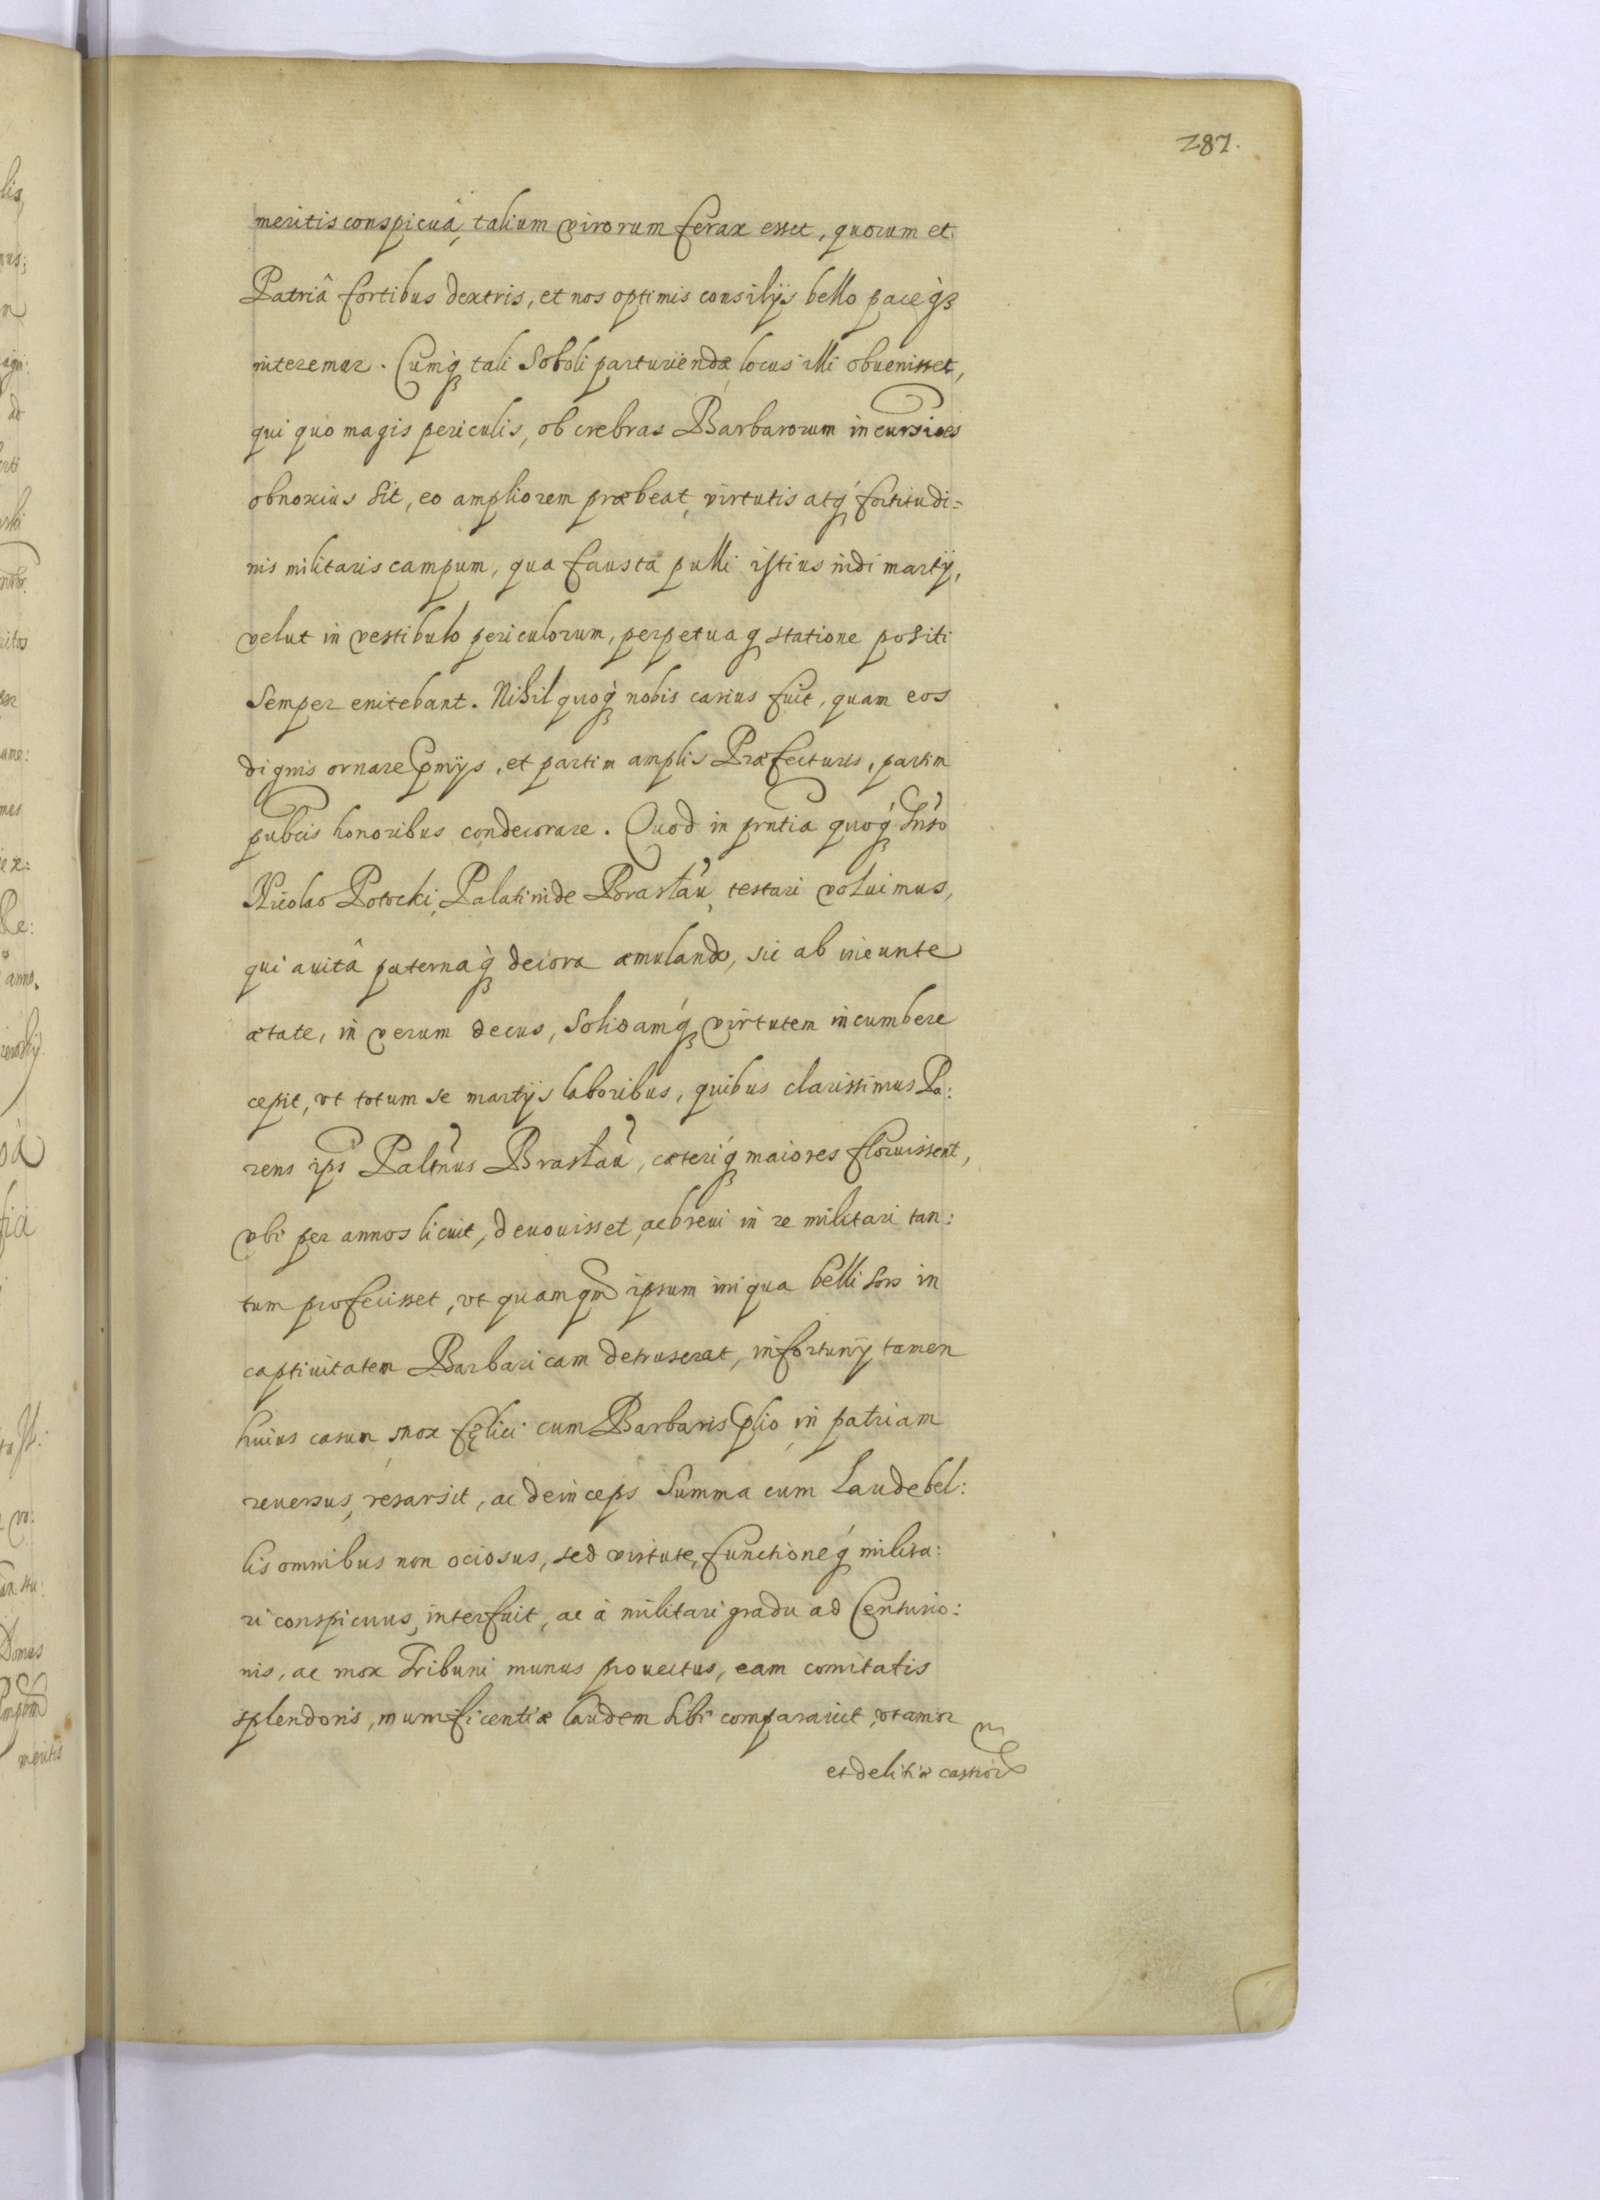 287.
meritis conspicuâ, talium virorum ferax esset, quorum et
Patriâ fortibus dextris, et nos optimis consilijs bello paceq́з
niteremur. Cumq́з tali Soboli parturiendæ locus illi obuenisset,
qui quo magis periculis, ob crebras Barbarorum incursiões
obnoxius sit, eo ampliorem præbeat, virtutis atq́ fortitudi=
nis militaris campum, qua fausta pulli istius nidi martij,
velut in vestibulo periculorum, perpetuaq statione positi
Semper enitebant. Nihil quoq́з nobis carius fuit, quam eos
dignis ornare p̃mijs, et partim amplis Præfecturis, partim
publcis honoribus condecorare. Quod in pr̃ntia quoq́з Gn̄so
Nicolao Potocki, Palatinide Brasłau, testari voluimus,
qui auitâ paternaq́з decora æmulando, sic ab ineunte
ætate, in verum decus, Solidamq́з virtutem incumbere
cepit, vt totum se martijs laboribus, quibus clarissimus Pa:
rens ips Palt̃nus Brasłau, cæteriq́з maiores floruissent,
vbi per annos licuit, deuouisset, ac breui in re militari tan:
tum profecisset, vt quamqm̃ ipsum iniqua belli sors in
captiuitatem Barbaricam detruserat, infortunij tamen
huius casum mox fęlici cum Barbaris p̃lio, in patriam
reuersus, resarsit, ac deinceps Summa cum Laude bel:
lis omnibus non ociosus, sed virtute, functioneq́ milita:
ri conspicuus, interfuit, ac à militari gradu ad Centurio:
nis, ac mox Tribuni munus prouectus, eam comitatis
splendoris, munificentiæ laudem sibi comparauit, vt amor
et delitiæ castror̃